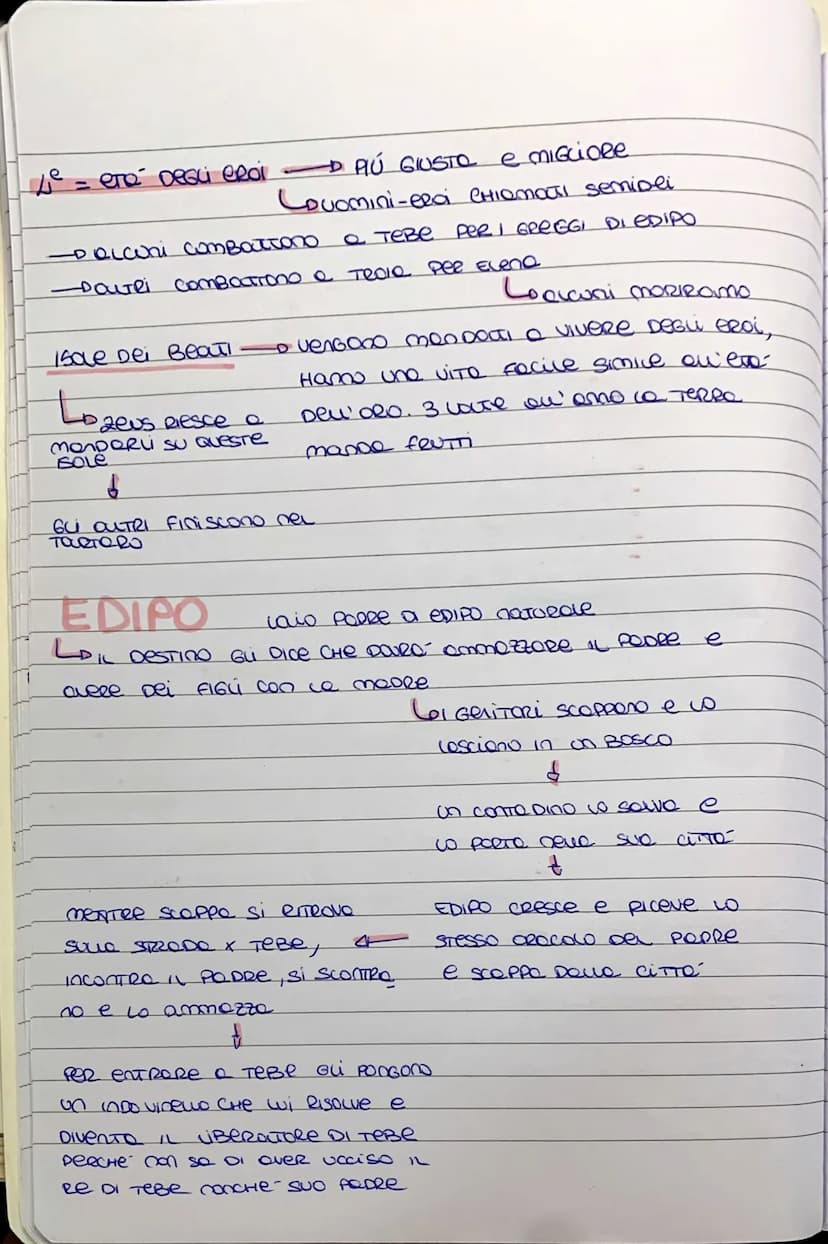 4ᵉ = ETÀ DEGLI EROI → PIÚ GIUSTA E MIGLIORE
↳ UOMINI-EROI CHIAMATI SEMIDEI
→ ALCUNI COMBATTONO A TEBE PER I GREGGI DI EDIPO
→ ALTRI COMBATTONO A TROIA PER ELENA
↳ ALCUNI MORIRAMO
ISOLE DEI BEATI → VENGONO MANDATI A VIVERE DEGLI EROI,
HANNO UNA VITA FACILE SIMILE ALL'ETÀ
DELL'ORO. 3 VOLTE ALL'ANNO LA TERRA
MANDA FRUTTI
↳ ZEUS RIESCE A
MANDARLI SU QUESTE
ISOLE
↓
GLI ALTRI FINISCONO NEL
TARTARO
EDIPO LAIO PADRE DI EDIPO NATURALE
↳ IL DESTINO GLI DICE CHE DOVRÀ AMMAZZARE IL PADRE E
AVERE DEI FIGLI CON LA MADRE
↳ I GENITORI SCAPPANO E LO
LASCIANO IN UN BOSCO
↓
UN CONTADINO LO SALVA E
LO PORTA NELLA SUA CITTÀ
↓
EDIPO CRESCE E RICEVE LO
STESSO ORACOLO DEL PADRE
E SCAPPA DALLA CITTÀ
←
MENTRE SCAPPA SI RITROVA
SULLA STRADA X TEBE,
INCONTRA IL PADRE, SI SCONTRA
NO E LO AMMAZZA
↓
PER ENTRARE A TEBE GLI PONGONO
UN INDOVINELLO CHE LUI RISOLVE E
DIVENTA IL LIBERATORE DI TEBE
PERCHÉ NON SA DI AVER UCCISO IL
RE DI TEBE NONCHÉ SUO PADRE